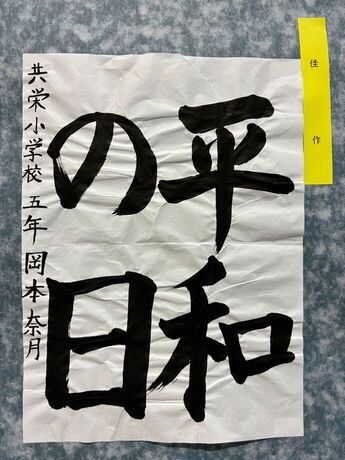 佳作
平和
の日
共栄小学校 五年 岡本奈月